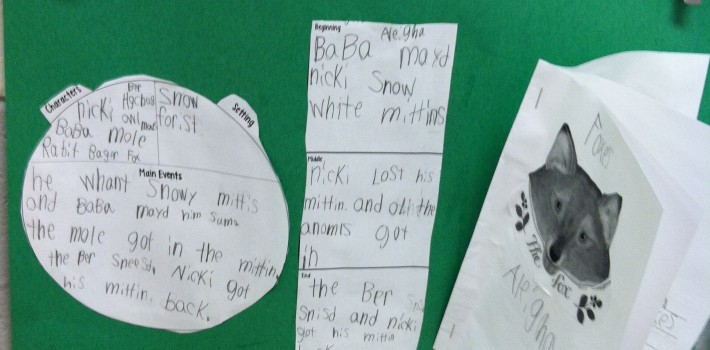 Characters
Ber
nicki Hgchog
BaBa owl mows
mole
Rabit Bager Fox
Setting
Snow
for.st
Main Events
he whant Snowy mittis
and BaBa mayd him sum
the mole got in the mittin
the Ber Sneesd, Nicki got
his mittin back.
Beginning
Aleigha
BaBa mayd
nicki Snow
white mittins
Middle
nicki Lost his
mittin and all the
anomls got
in
End
the Ber
Snisd and nicki
got his mittin
Fox
The fox
Aleigha